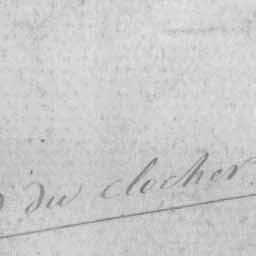 du clocher.